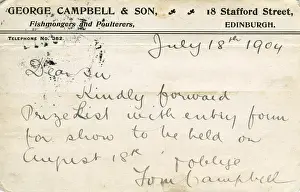 GEORGE, CAMPBELL & SON, 18 Stafford Street,
Fishmongers and Poulterers, EDINBURGH.
TELEPHONE No. 382.
July 18th 1904
Dear Sir
Kindly forward
Prize List with entry form
for show to be held on
August 18th & oblige
Tom Campbell